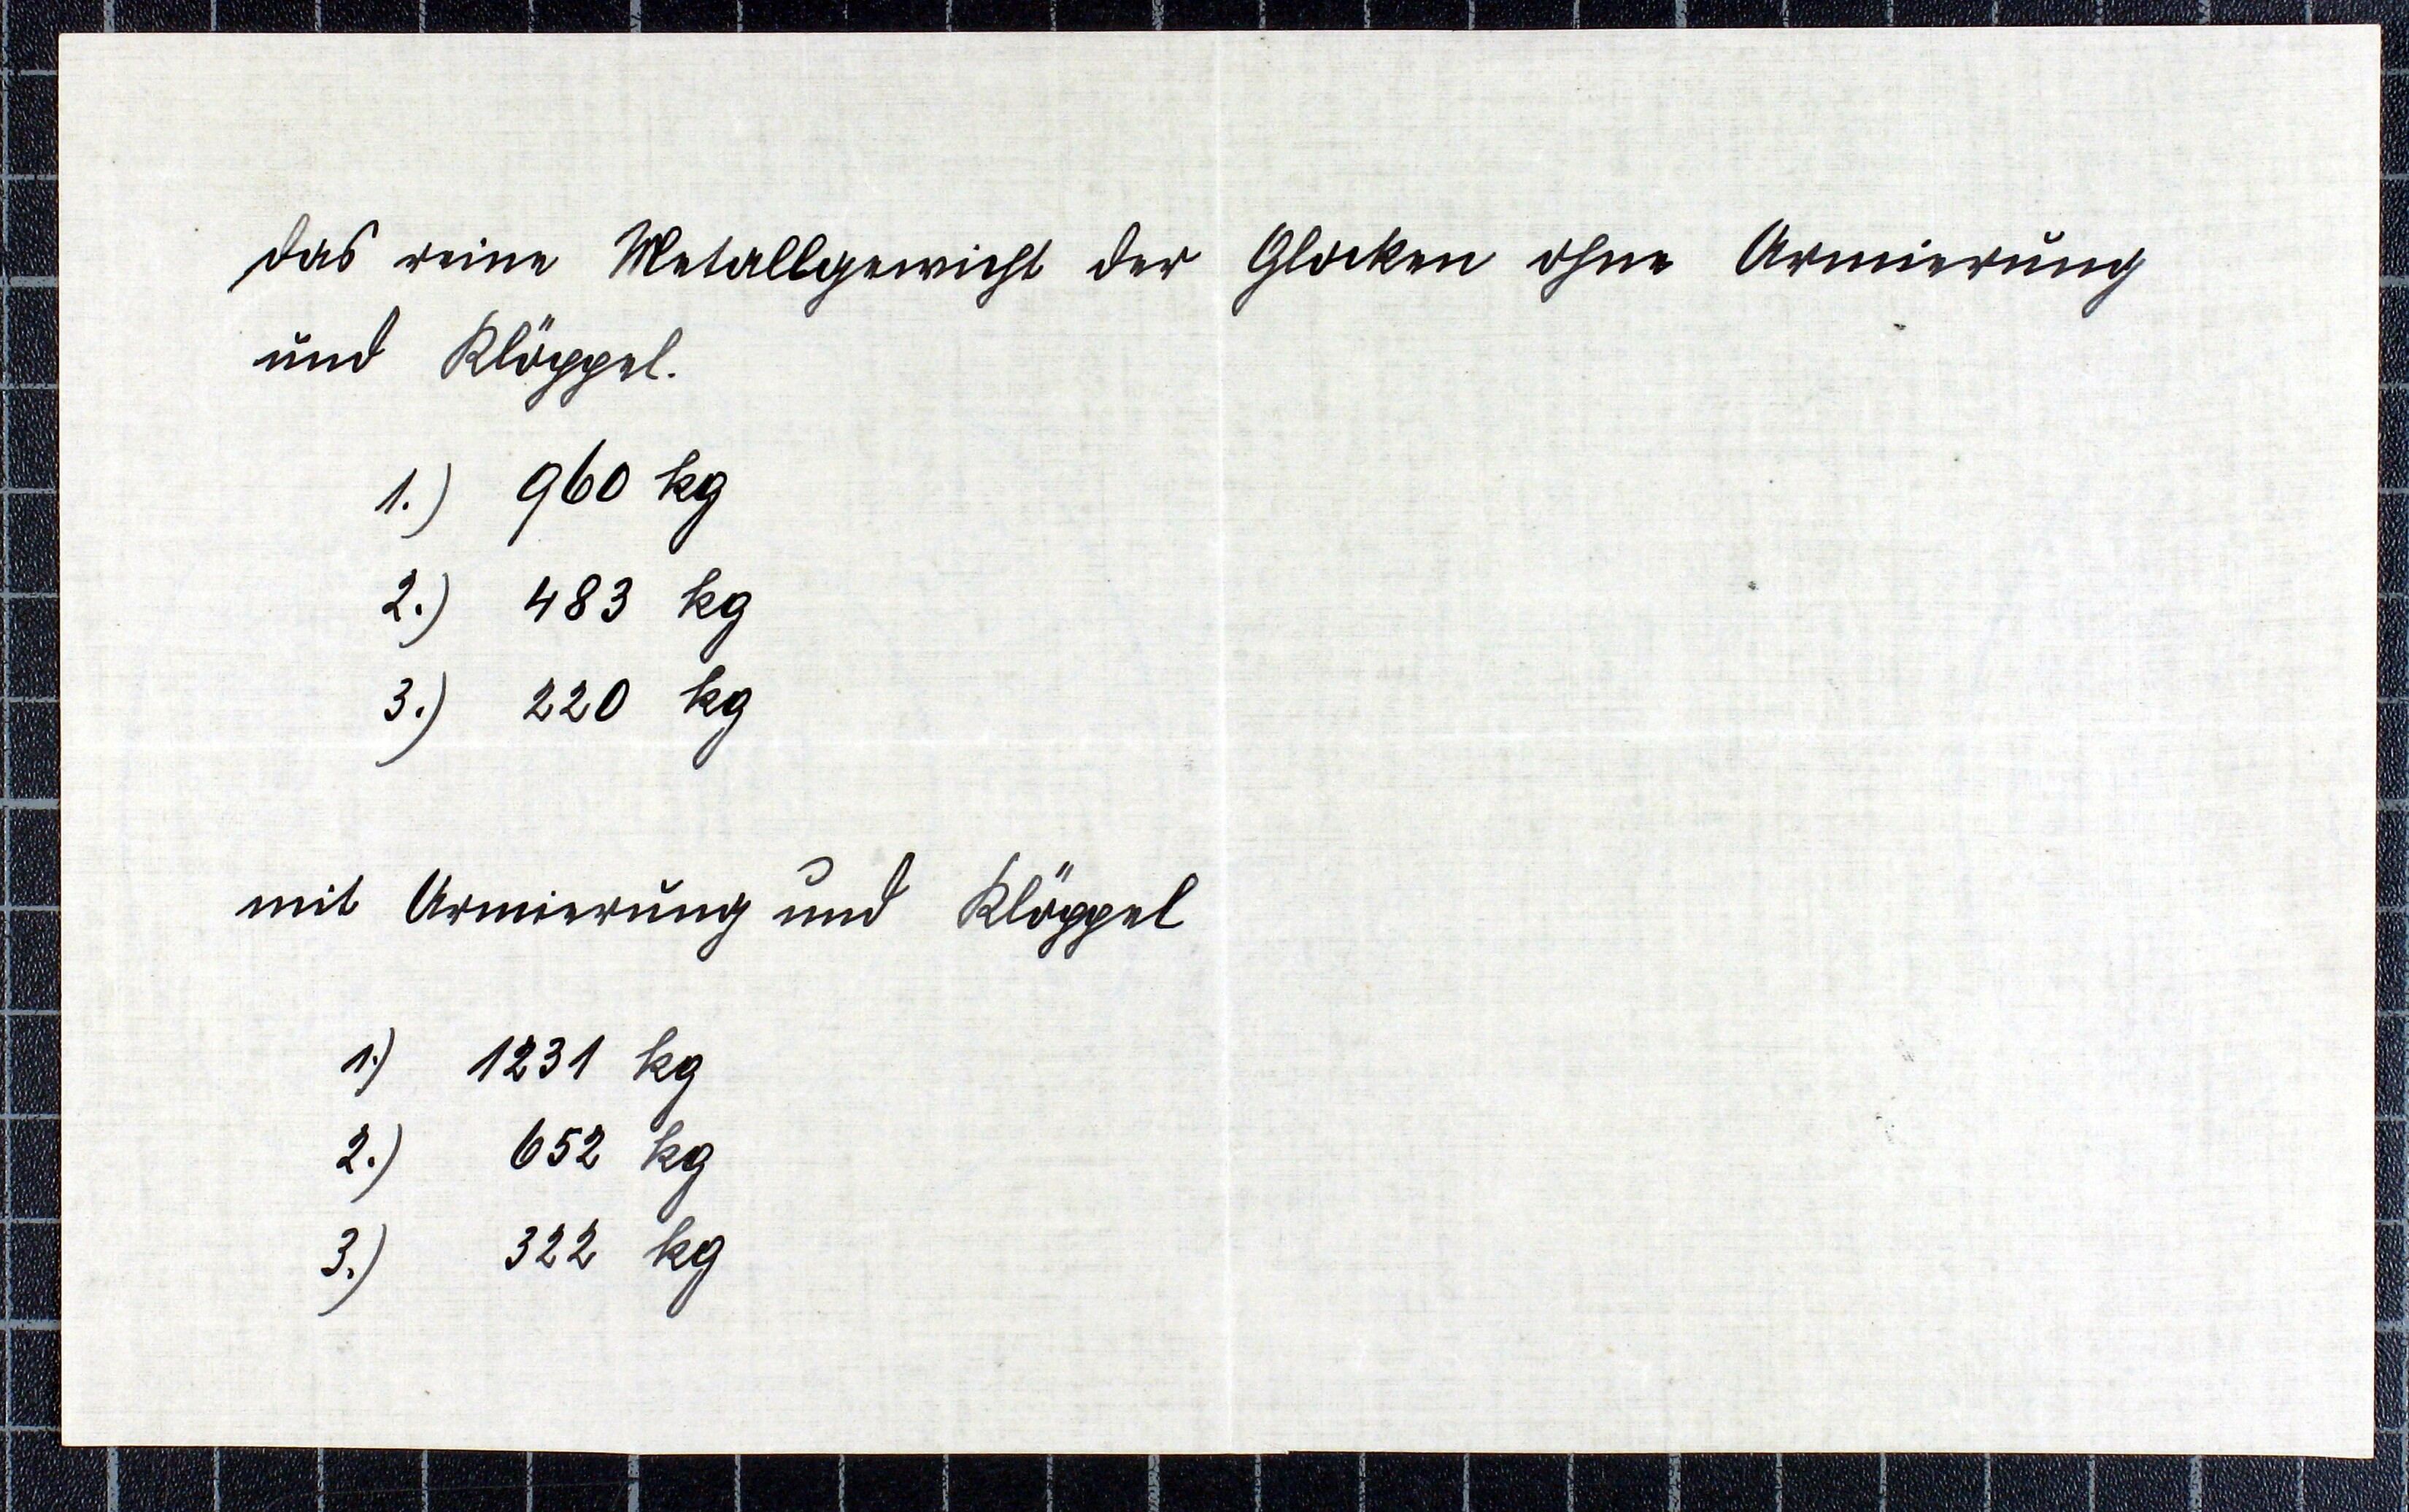 das reine Metallgewicht der Glocken ohne Armierung
und Klöppel.
1.) 960 kg
2.) 483 kg
3.) 220 kg
mit Armierung und Klöppel
1.) 1231 kg
2.) 652 kg
3.) 322 kg